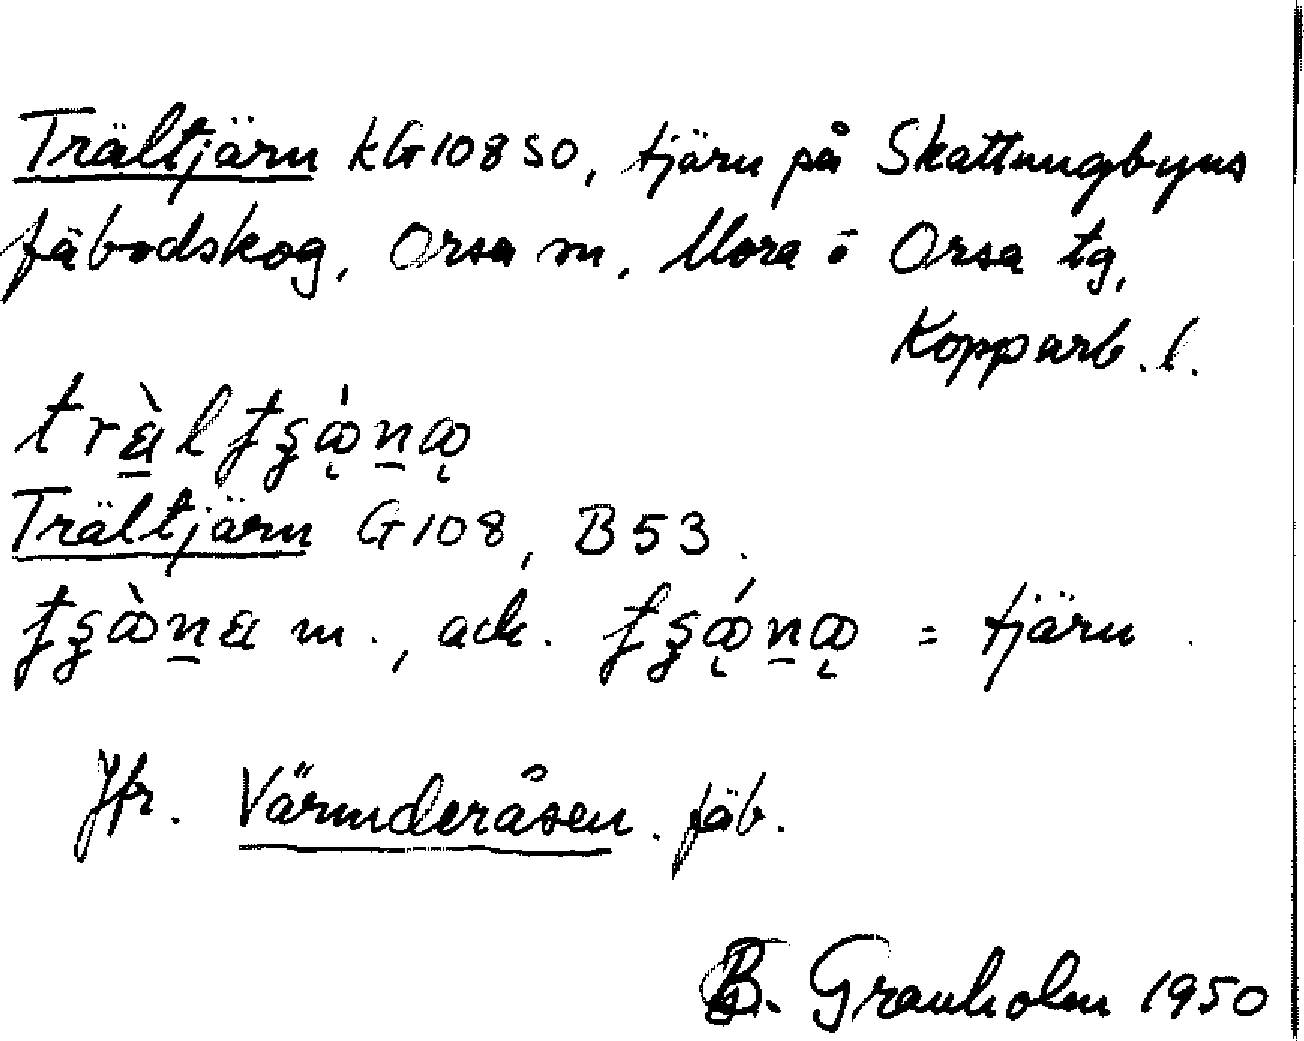 Trältjärn kG108 SO, tjärn på Skattungbyns
fäbodskog, Orsa sn, Mora o Orsa tg,
Kopparb. l.
Trältjärn G108, B53.
m., ack. = tjärn.
Jfr. Värmderåsen. fäb.
B. Granholm 1950